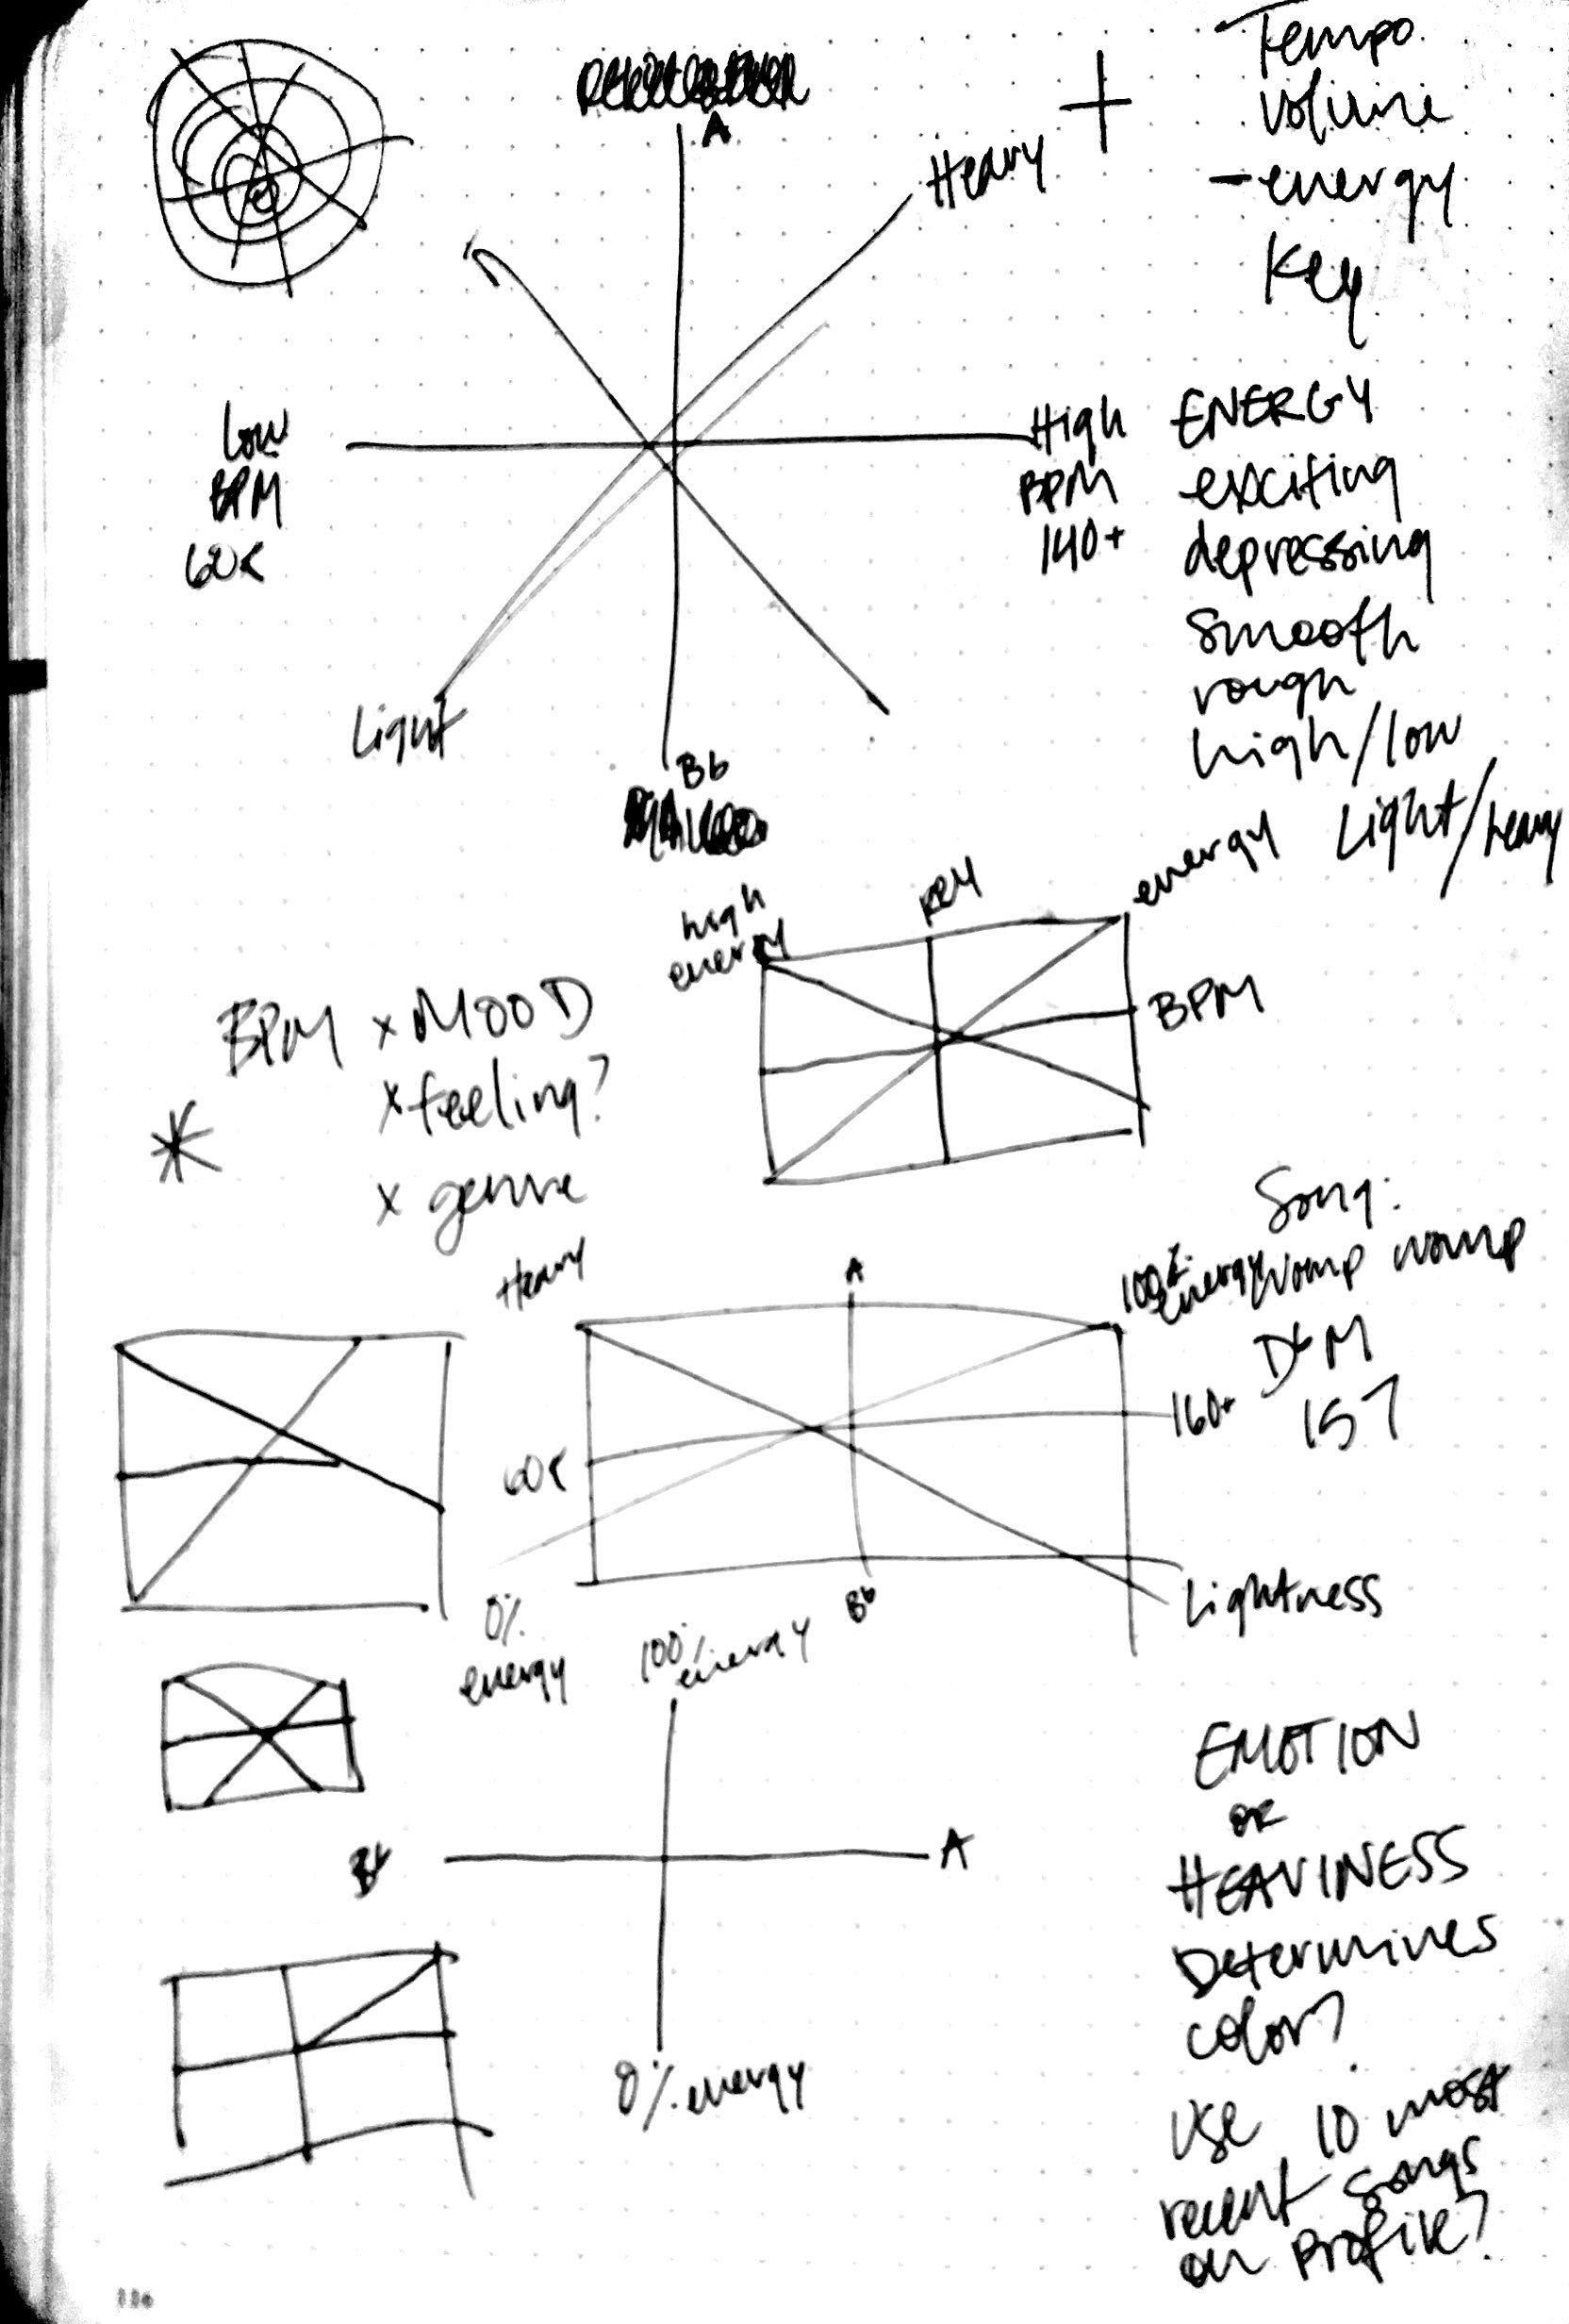 A
Heavy
Tempo
volume
- energy
Key
Low
BPM
60<
High
BPM
140+
ENERGY
exciting
depressing
smooth
rough
high/low
Light/heavy
Light
Bb
high
energy
key
energy
BPM
BPM x MOOD
x feeling?
x genre
Song:
Womp womp
Db M
157
Heavy
A
100%
energy
60<
160+
0%
energy
Bb
Lightness
100%
energy
Bb
A
0% energy
EMOTION
OR
HEAVINESS
Determines
color?
Use 10 most
recent songs
on profile?